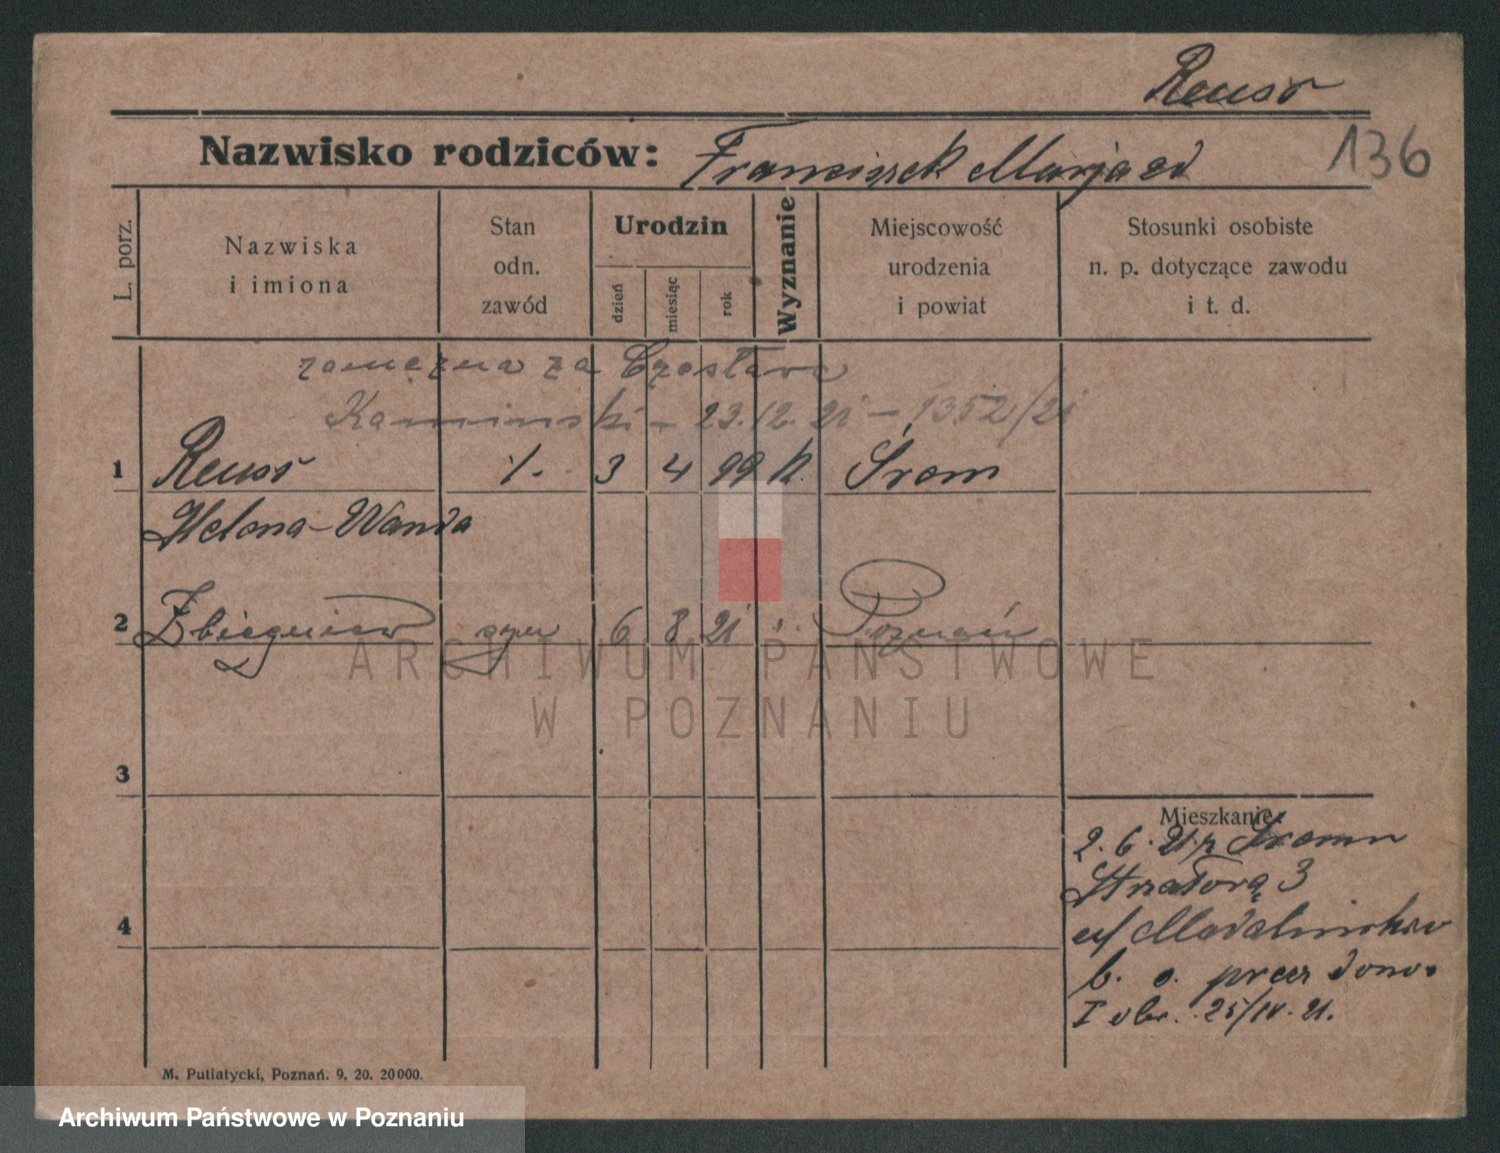 Reuss
Nazwisko rodziców: Franciszek Marja
136
L. porz.
Nazwiska
i imiona
Stan
odn.
zawód
Urodzin
dzień
miesiąc
rok
Wyznanie
Miejscowość
urodzenia
i powiat
Stosunki osobiste
n. p. dotyczące zawodu
i t. d.
zamężna za Czesława
Kaminski - 23.12.21 - 1352/21
1 Reuss /. 3 4 99 k. Śrem
Helena-Wanda
2 Zbiegniew syn 6 8 21 Poznań
3
4
Mieszkanie:
2. 6. 21 z Śremu
Strzałowa 3
b. o.
25/IV. 21.
M. Putiatycki, Poznań. 9. 20. 20000.
ARCHIWUM PAŃSTWOWE
W POZNANIU
Archiwum Państwowe w Poznaniu